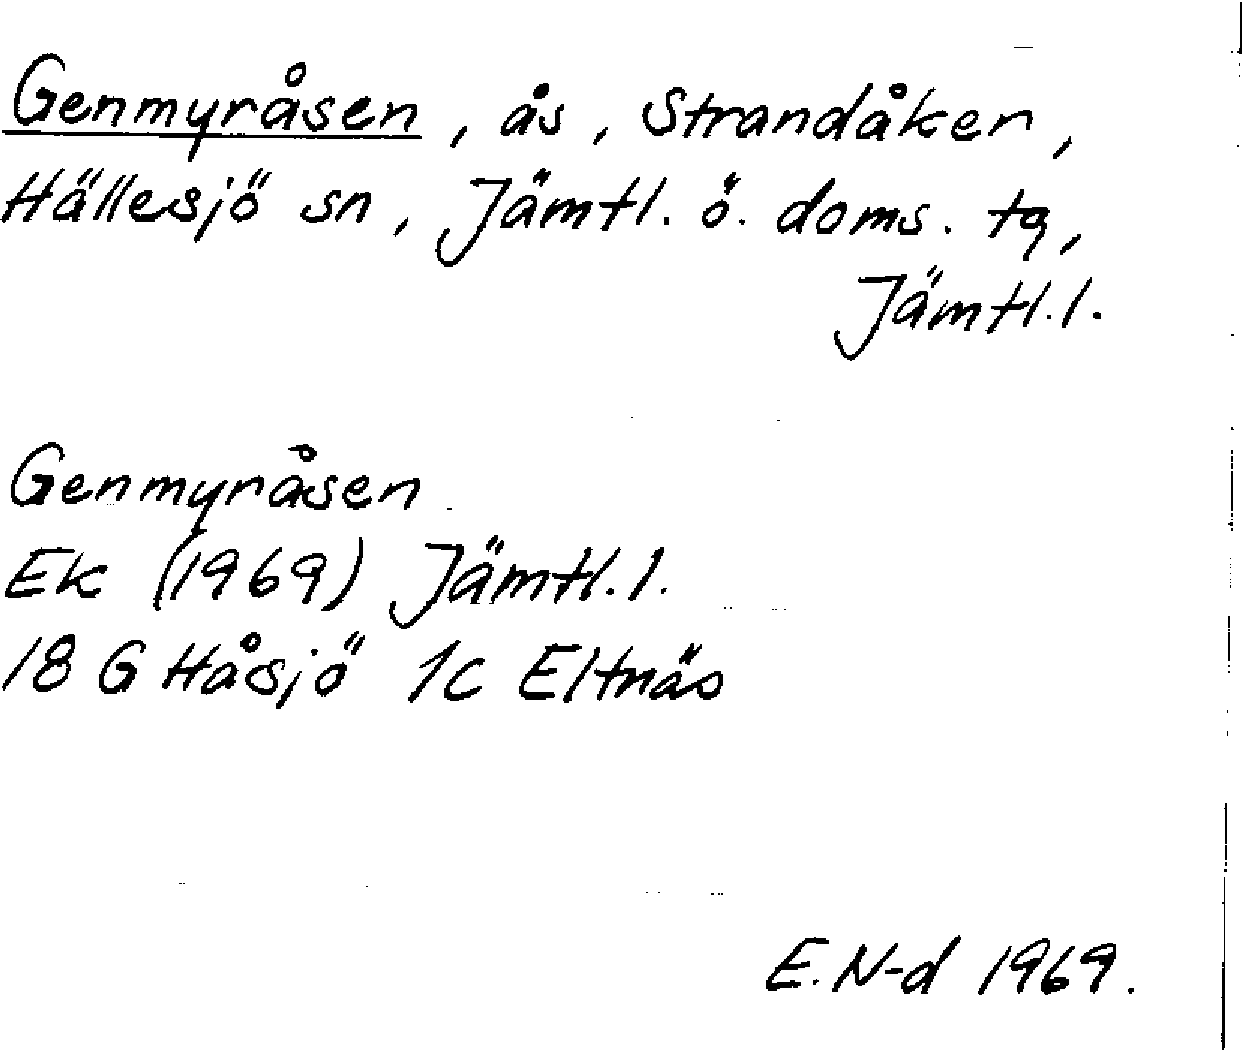 Genmyråsen, ås, Strandåker,
Hällesjö sn, Jämtl. ö. doms. tg,
Jämtl.l.
Genmyråsen
Ek (1969) Jämtl.l.
18 G Håsjö 1c Eltnäs
E.N-d 1969.